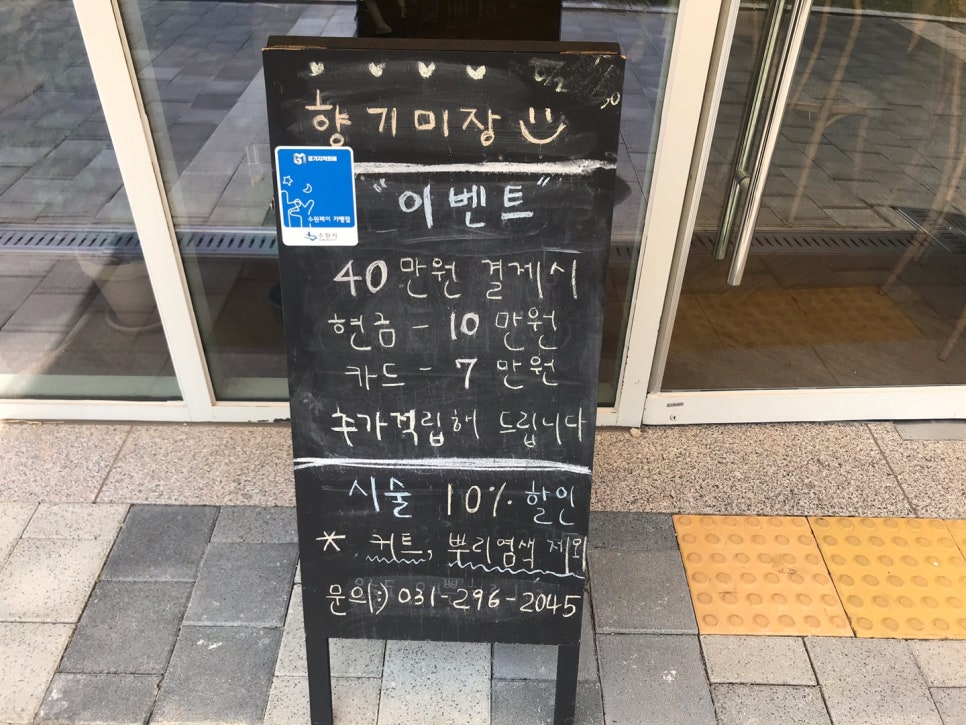 향기미장
경기지역화폐
수원페이 가맹점
수원시
"이벤트"
40만원 결제시
현금 - 10만원
카드 - 7만원
추가적립해 드립니다
시술 10% 할인
* 커트, 뿌리염색 제외
문의:) 031-296-2045